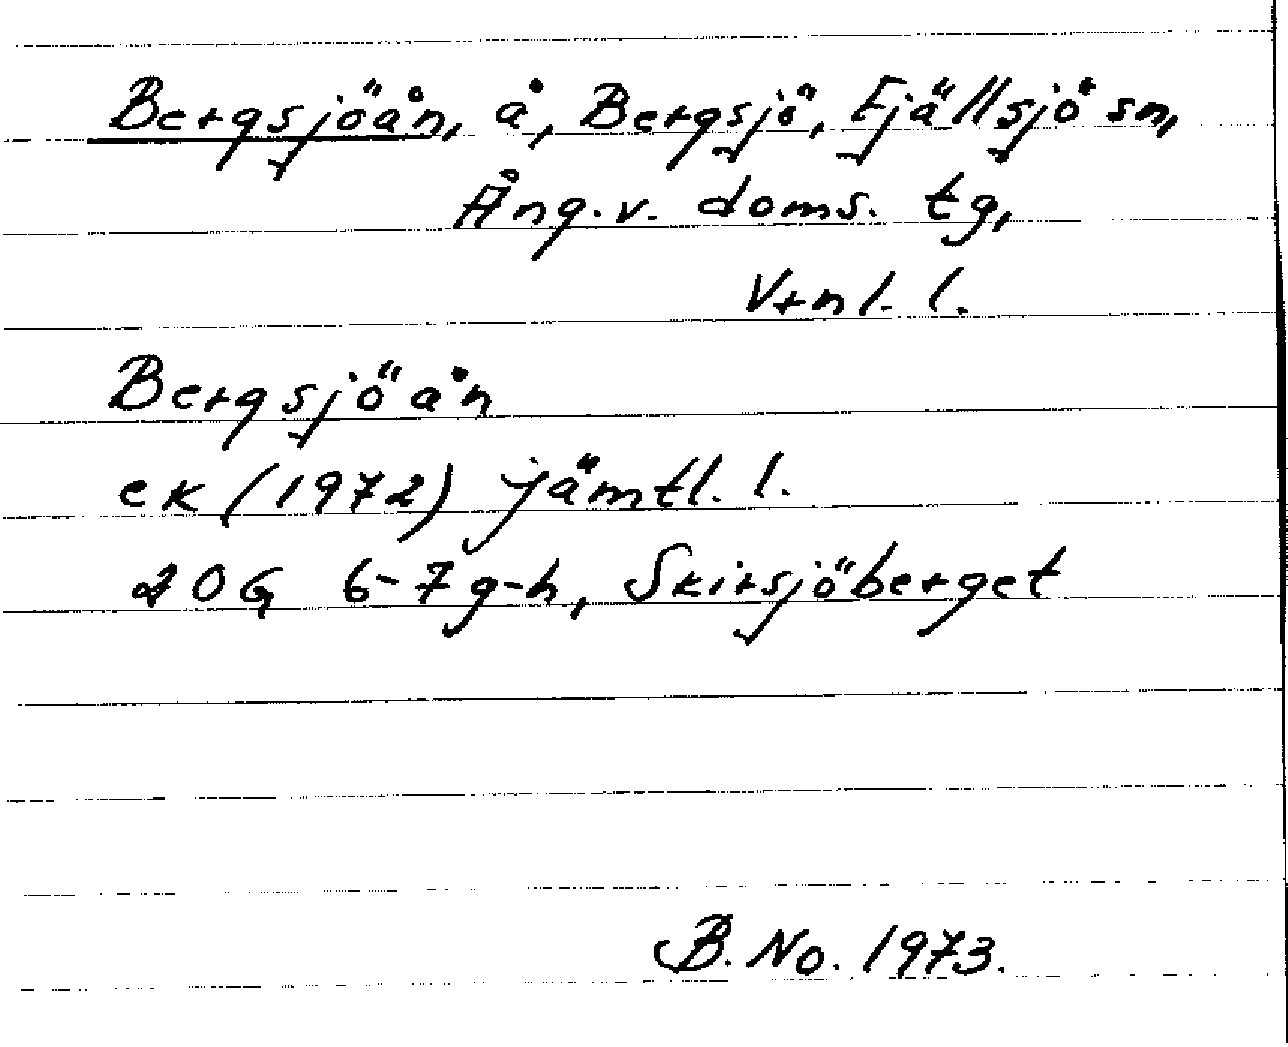 Bergsjöån, å, Bergsjö, Fjällsjö sn,
Ång.v. doms. tg,
V+nl. l.
Bergsjöån
ek (1972) jämtl. l.
20G 6-7g-h, Skirsjöberget
B. No. 1973.